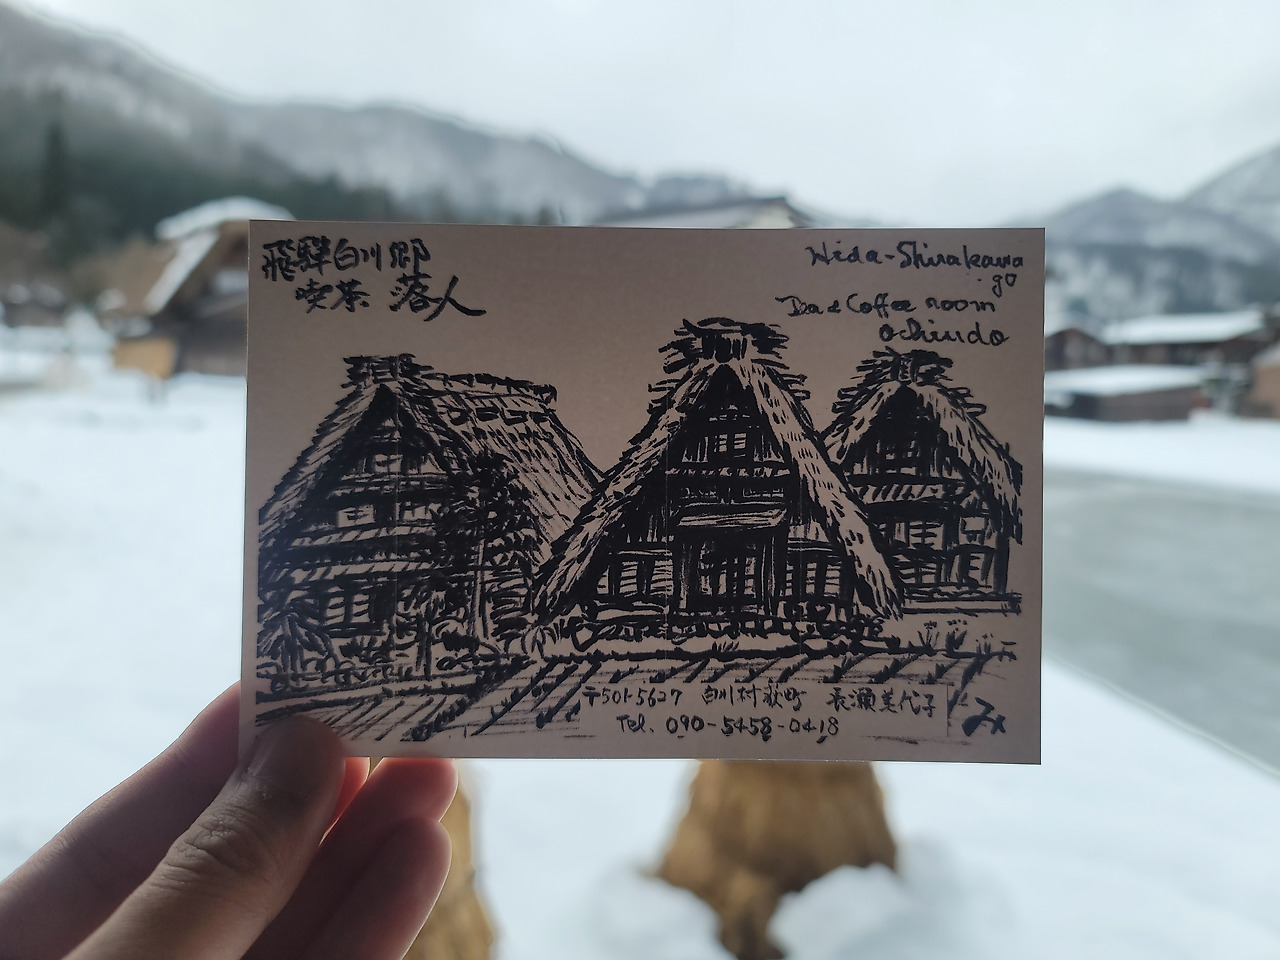 飛騨白川郷
喫茶 落人
Hida-Shirakawa
go
Tea & Coffee room
ochiudo
〒501-5627 白川村荻町 長瀬美代子
Tel. 090-5458-0418
み